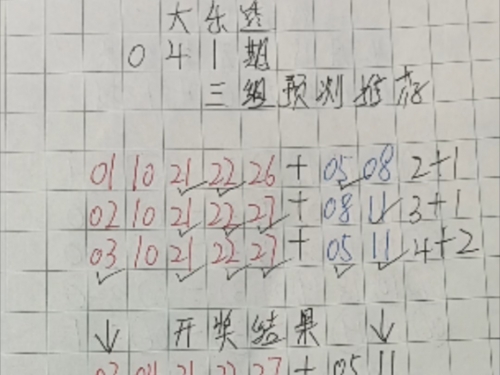 大乐透
041期
三组预测推荐
01 10 21 22 26 + 05 08 2+1
02 10 21 22 27 + 08 11 3+1
03 10 21 22 27 + 05 11 4+2
↓ 开奖结果 ↓
03 04 21 22 27 + 05 11